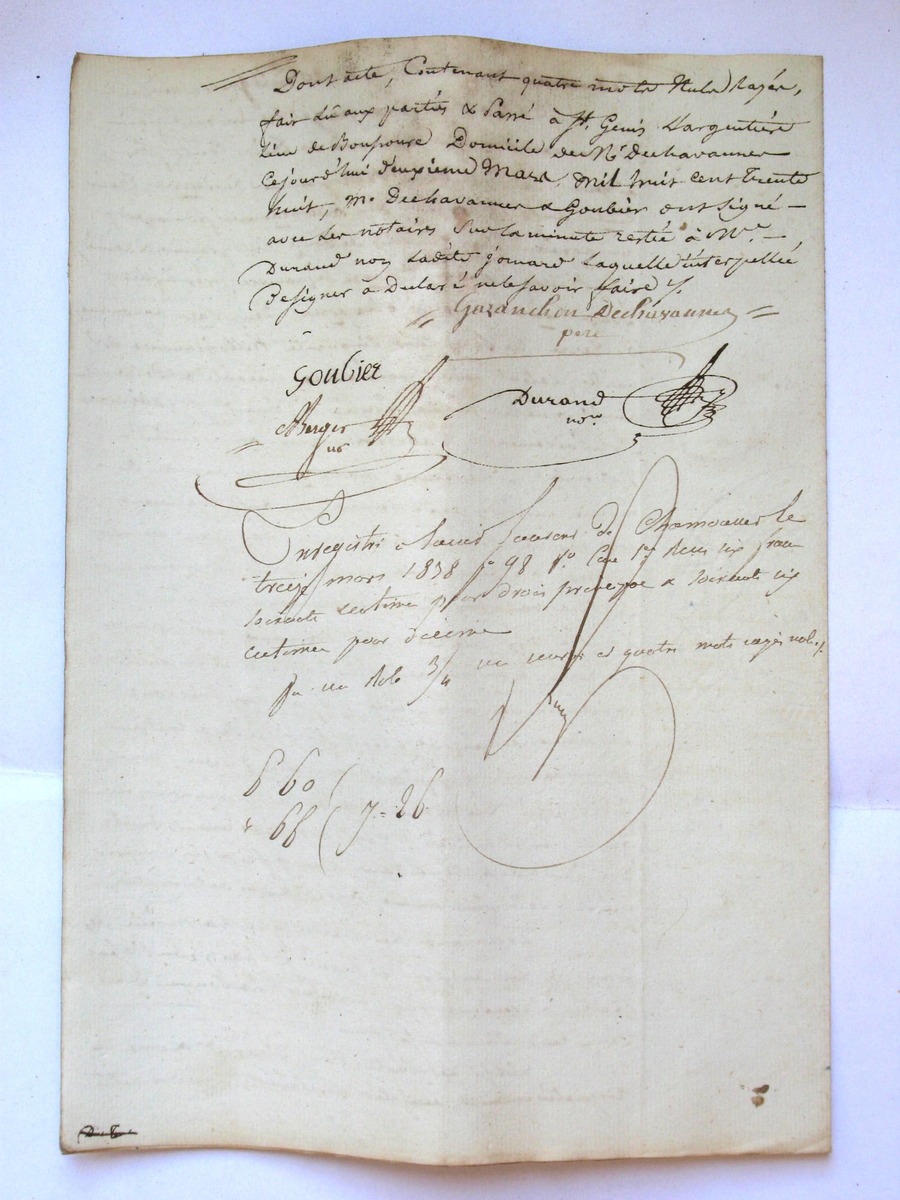 Dont acte, Contenant quatre mots Nuls Rayés,
fait Lû aux parties & Passé à St. Genis L'argentière
Lieu de Domicile de Mr Dechavannes
Cejourd'hui deuxieme Mars, mil huit cent trente
huit, mr. Dechavannes & Goubier ont signé —
avec Les notaires Sur la minute restée à Me. —
Durand non Ladite jomard Laquelle interpellée
de signer a Declaré ne le savoir faire ./.
Garanchon Dechavannes
pere
Goubier
Berger
Durand
nore
Enregistré à de Chamousset le
treize mars 1838 fo 98 Vo Case 1re Reçu six francs
soixante centimes pour droit & soixante six
centimes pour décime
un Rôle 3/4 un renvoi et quatre mots rayés nuls ./.
6 60
" 66
7 = 26